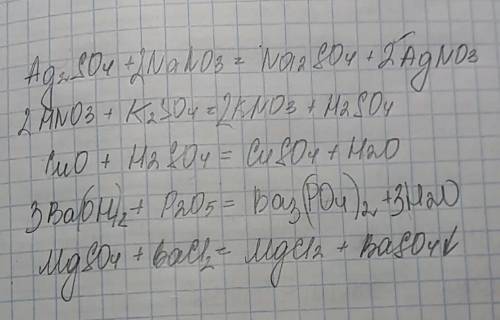 Ag2SO4 + 2NaNO3 = Na2SO4 + 2AgNO3
2HNO3 + K2SO4 = 2KNO3 + H2SO4
CuO + H2SO4 = CuSO4 + H2O
3Ba(OH)2 + P2O5 = Ba3(PO4)2 + 3H2O
MgSO4 + BaCl2 = MgCl2 + BaSO4↓